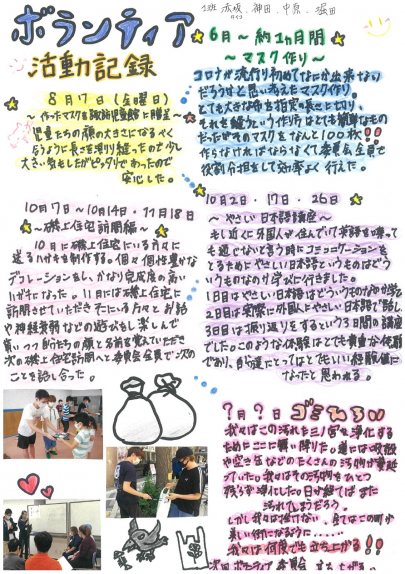 1班 赤坂、神田、中原、堀田
ボランティア
活動記録
6月～約1ヵ月間
～マスク作り～
コロナが流行り初めてなにか出来ない
だろうかと思い考えたマスク作り。
とても大きな布を指定の長さに切り、
それを縫うという作り方はとても簡単なもの
だったがそのマスクをなんと100枚!!
作らなければならなくて委員会全員で
役割分担をして効率よく行えた。
8月7日(金曜日)
児童たちの顔の大きさになるべく
合うように長さを測り縫ったので少し
大きい気もしたがピッタリでわったので
安心した。
10月7日～10月14日・11月18日
～磯上住宅訪問編～
10月に磯上住宅にいる方々に
送るハガキを制作する。個々個性豊かな
デコレーションをし、かなり完成度の高い
ハガキになった。11月には磯上住宅に
訪問させていただきそこにいる方々とお話
や神経衰弱などの遊びをし楽しんで
貰いつつ自分たちの顔と名前を覚えていただき
次の磯上住宅訪問へと委員会全員で次の
ことを話し合った。
10月2日・17日・26日
～やさしい日本語講座～
もし近くに外国人が住んでいて英語を喋って
も通じないと言う時にコミュニケーションを
とるためにやさしい日本語というものはどう
いうものなのか学びに行きました。
1日目はやさしい日本語はどういうものなのか学び
2日目は実際に外国人とやさしい日本語で話し、
3日目は振り返りをするという3日間の講座
でした。このような体験はとても貴重な体験
であり、自分達にとってはとてもいい経験値に
なったと思われる。
?月?日 ゴミひろい
我々はこの汚れた三ノ宮を浄化する
ためにここに舞い降りた。道には吸殻
や空き缶などのたくさんの汚物が蔓延
っていた。我々はその汚物をひとつ
残らず浄化したの日が経てばまた
汚れてしまうだろう。
しかし我々は挫けない。全てはこの町が
美しい街になるように……
我々は何度でも立ち上がる!!